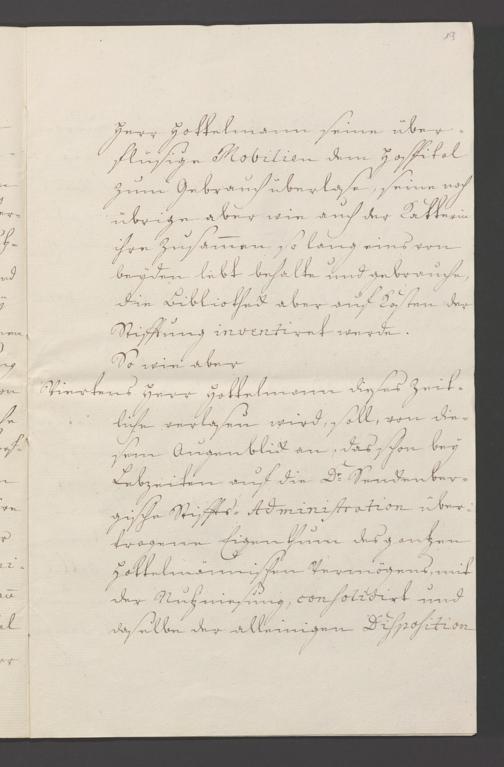 13
Herr Hottelmann seine über-
flüsige Mobilien dem Hospital
zum Gebrauch überlase, seine noch
übrige aber wie auch der Katterin
ihre zusam̄en, so lang eins von
beyden lebt behalte und gebrauche,
die Bibliotheck aber auf Kosten der
Stifftung inventiret werde.
So wie aber
Viertens Herr Hottelmann dieses Zeit-
liche verlasen wird, soll, von die-
sem Augenblick an, das schon bey
Lebzeiten auf die Dr. Senckenber-
gische Stiffts-Administration über-
tragene Eigenthum des gantzen
Hottelmännischen Vermögens, mit
der Nutzniesung, consolidirt und
daselbe der alleinigen Disposition